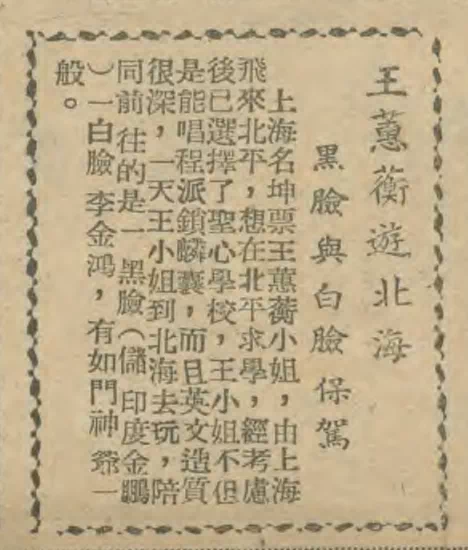 王蕙蘅遊北海
黑臉與白臉保駕
上海名坤票王蕙蘅小姐，由上海
飛來北平，想在北平求學，經考慮
後已選擇了聖心學校，王小姐不但
是能唱程派鎖麟囊，而且英文造質
很深，一天王小姐到北海去玩，陪
同前往的是一黑臉（儲印度金鵬
）一白臉李金鴻，有如門神爺一
般。